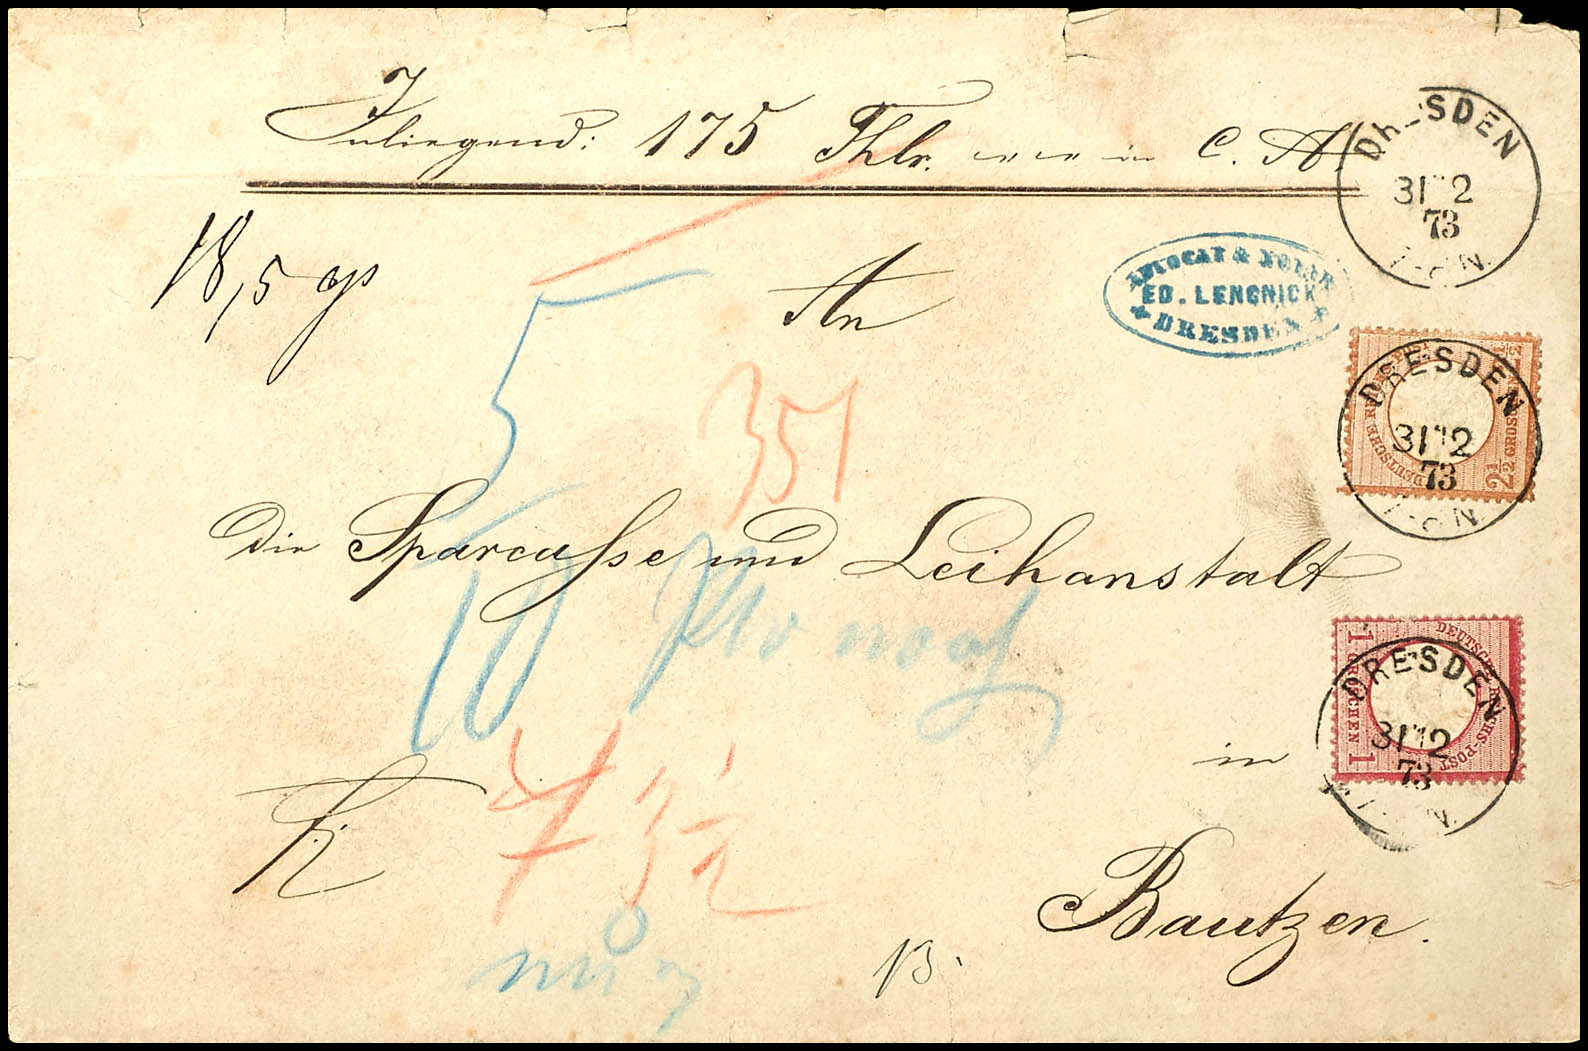 Inliegend: 175 Thlr. in C. A.
DRESDEN
31 12
73
18,5 gs
ADVOCAT & NOTAR
ED. LENGNICK
DRESDEN
5
An
351
DRESDEN
31 12
73
DEUTSCHE REICHS-POST
2½ GROSCHEN 2½
die Sparcasse und Leihanstalt
10 Pto noch
DRESDEN
31 12
73
DEUTSCHE REICHS-POST
1 GROSCHEN 1
in
3½
Bautzen.